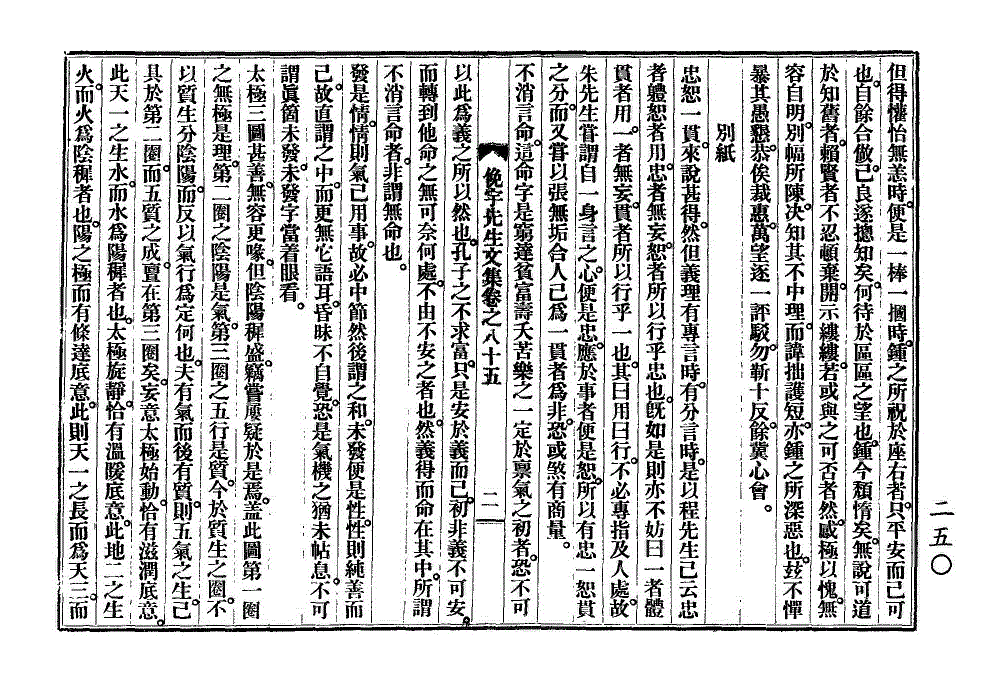 但得懽怡無恙時便是一棒一摑時鍾之所祝於座右者只平安而已可
也自餘合倣己良遂摠知矣何待於區區之望也鍾今頹惰矣無說可道
於知舊者賴賢者不忍頓棄開示縷縷若或與之可否者然感極以愧無
容自明別幅所陳决知其不中理而諱拙護短亦鍾之所深惡也玆不憚
暴其愚懇恭俟裁惠萬望逐一評駁勿靳十反餘冀心會
別紙
忠恕一貫來說甚得然但義理有專言時有分言時是以程先生已云忠
者軆恕者用忠者無妄恕者所以行乎忠也旣如是則亦不妨曰一者體
貫者用一者無妄貫者所以行乎一也其曰用曰行不必專指及人處故
朱先生嘗謂自一身言之心便是忠應於事者便是恕所以有忠一恕貫
之分而又嘗以張無垢合人己爲一貫者爲非恐或煞有商量
不消言命這命字是窮達貧富壽夭苦樂之一定於禀氣之初者恐不可
俛宇先生文集卷之八十五
二
以此爲義之所以然也孔子之不求富只是安於義而已初非義不可安
而轉到他命之無可奈何處不由不安之者也然義得而命在其中所謂
不消言命者非謂無命也
發是情情則氣已用事故必中節然後謂之和未發便是性性則純善而
已故直謂之中而更無它語耳昏昧不自覺恐是氣機之猶未帖息不可
謂眞箇未發未發字當着眼看
太極三圖甚善無容更喙但陰陽穉盛竊嘗屢疑於是焉盖此圖第一圈
之無極是理第二圈之陰陽是氣第三圈之五行是質今於質生之圈不
以質生分陰陽而反以氣行爲定何也夫有氣而後有質則五氣之生已
具於第二圈而五質之成亶在第三圈矣妄意太極始動恰有滋潤底意
此天一之生水而水爲陽穉者也太極旋靜恰有溫暖底意此地二之生
火而火爲陰穉者也陽之極而有條達底意此則天一之長而爲天三而
二五〇